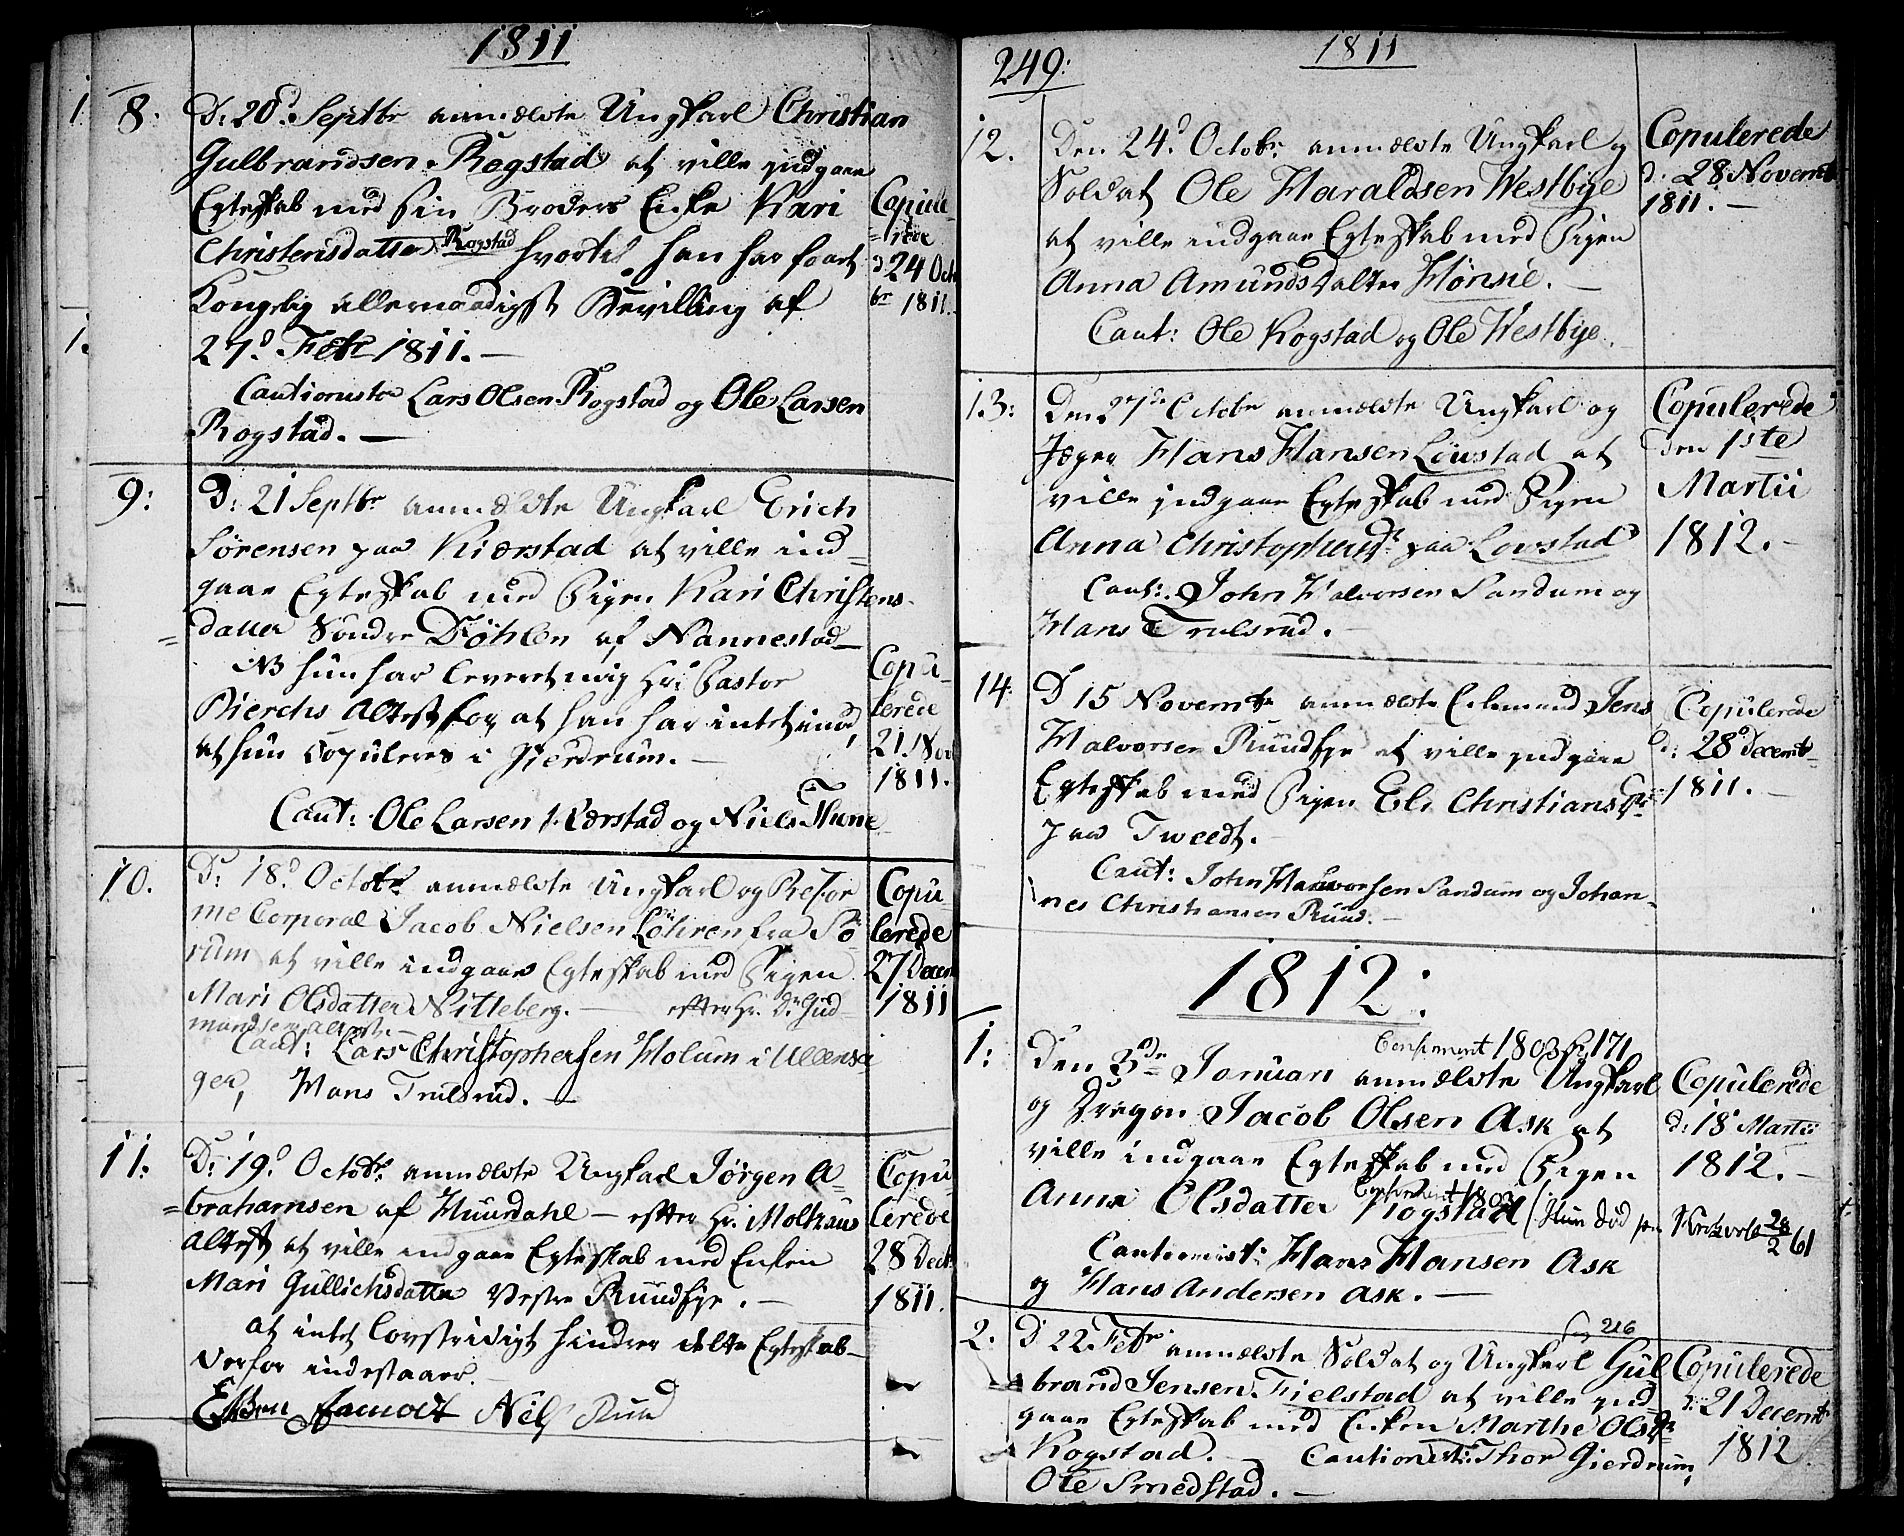 1811
8. D: 20d Septbr anmældte Ungkarl Christian
Gulbrandsen Rogstad at ville indgaae
Egteskab med sin Broders Enke Kari
Christensdatter Rogstad hvortil han har faaet
Kongelig allernaadigst Bevilling af
27d Febr 1811. —
Cautionister Lars Olsen Rogstad og Ole Larsen
Rogstad. —
Copule-
=rede
d. 24 Octo
br 1811. -
9: D: 21 Septbr anmældte Ungkarl Erich
Sørensen paa Kiærstad at ville ind=
gaae Egteskab med Pigen Kari Christens-
=datter Søndre Døhlen af Nannestad —
NB hun har leveret mig Hr: Pastor
Bierchs Attest for, at han har intet imod,
at hun Copuleres i Gierdrum. —
Caut: Ole Larsen Kiærstad og Niels Thune
Copu-
lerede
21. Nov
1811.
10. D: 18d Octobr anmældte Ungkarl og Refor
me Corporal Jacob Nielsen Løhren fra Sø
rum at ville indgaae Egteskab med Pigen
Mari Olsdatter Nitteberg. — efter Hr. Dr. Gud-
mundsens attest. —
Caut: Lars Christophersen Holum i Ullensa
ger, Hans Trulsrud. —
Copu-
lerede
27 Decem
1811
11. D: 19d Octobr anmældte Ungkarl Jørgen A=
=brahamsen af Huurdahl — efter Hr. Moltzaus
Attest at ville indgaae Egteskab med Enken
Mari Gullichsdatter Vestre Ruudsye. —
at intet lovstridigt hindrer dette Egteskab —
derfor indestaaer. —
Niels Ruud
Copu-
lerede
28 Decb
1811.
249: 1811
12. Den 24d Octobr anmældte Ungkarl og
Soldat Ole Haraldsen Westbye
at ville indgaae Egteskab med Pigen
Anna Amundsdatter Hønsie. —
Caut: Ole Rogstad og Ole Westbye.
Copulerede
d: 28 Novembr
1811. —
13: Den 27de Octobr anmældte Ungkarl og
Jæger Hans Hansen Løwstad at
ville indgaae Egteskab med Pigen
Anna Christophersdr paa Lovstad
Caut: John Halvorsen Sandum og
Hans Trulsrud. —
Copulerede
den 1ste
Martii
1812. —
14: D 15 Novembr anmældte Enkemand Jens
Halvorsen Ruudsye at ville indgaae
Egteskab med Pigen Eli Christiansdr
paa Tweedt. —
Caut: John Halvorsen Sandum og Johan-
nes Christiansen Ruud. —
Copulerede
d: 28d Decembr
1811. —
1812:
Confirmeret 1803 pg 171
1: Den 3de Januari anmældte Ungkarl
og Dragon Jacob Olsen Ask at
ville indgaae Egteskab med Pigen
Confirmeret 1803
Anna Olsdatter Rogstad (Hun død paa Kirkerle 28/2 61
Cautionist: Hans Hansen Ask
og Hans Andersen Ask. —
Copulerede
d: 18 Martii
1812. —
pag 216
2. D 22 Febr anmældte Soldat og Ungkarl Gul
brand Jensen Fielstad at ville ind-
gaae Egteskab med Enken Marthe Olsdr
Rogstad. — Cautionist: Thor Gierdrum,
Ole Smedstad. —
Copulerede
d: 21 Decembr
1812.